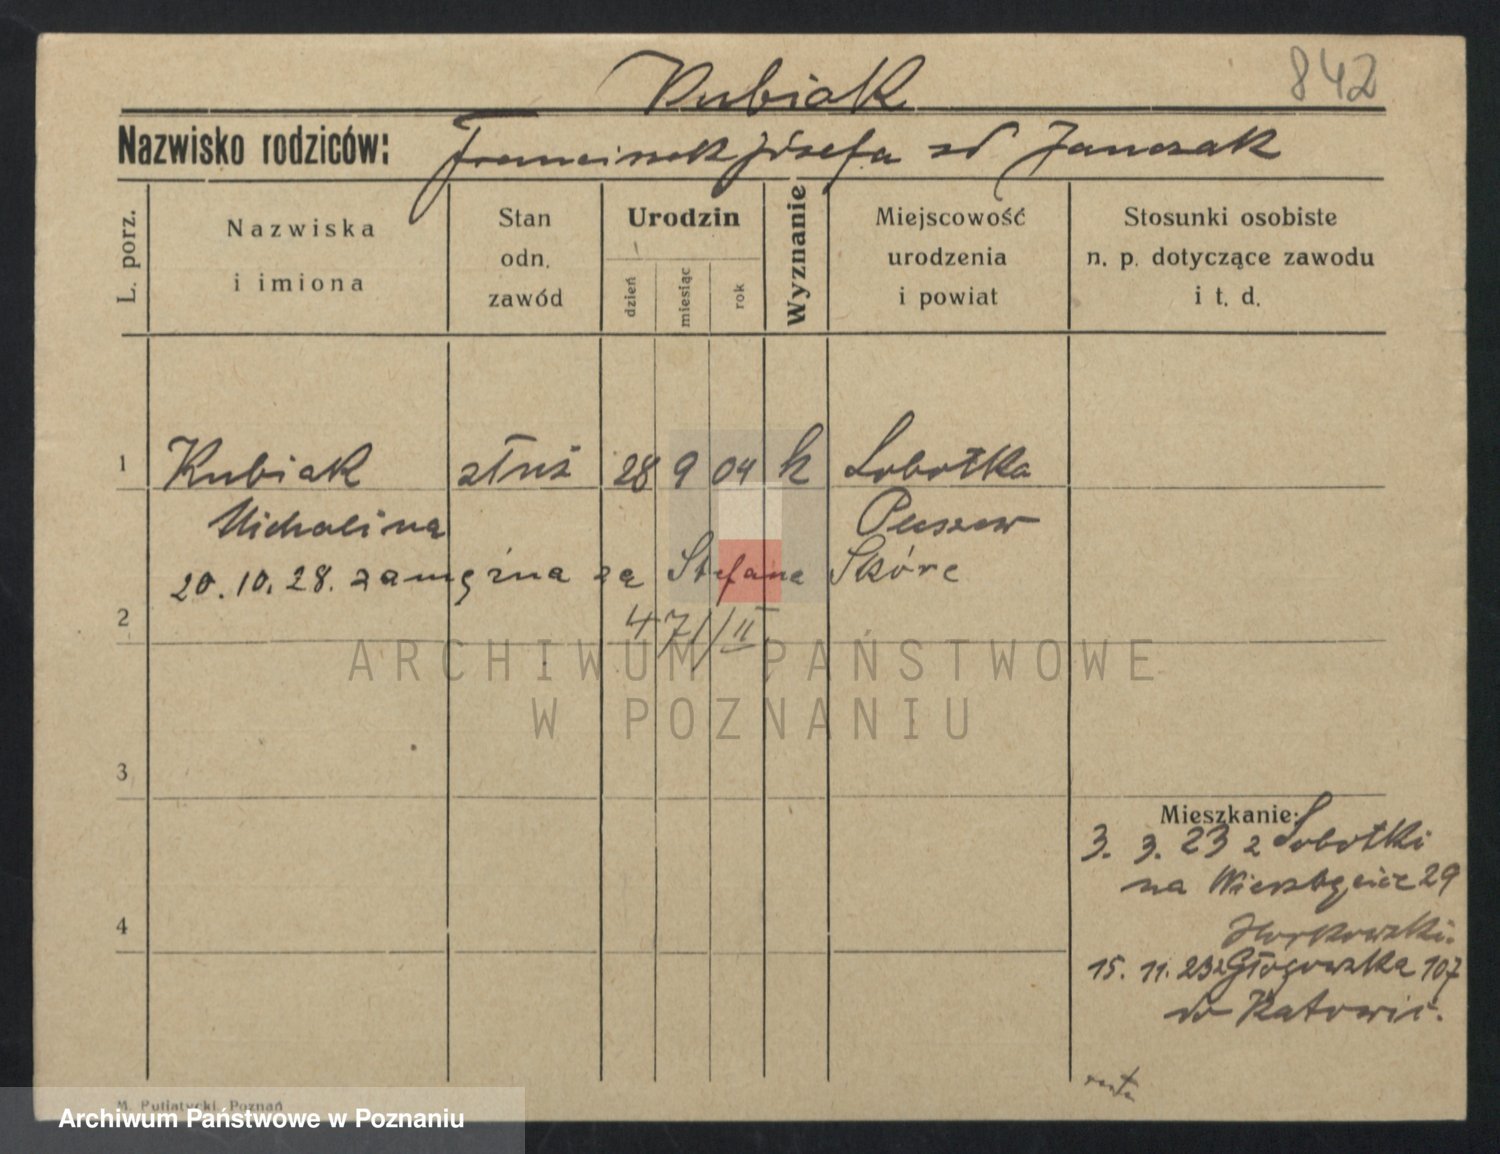 842
Kubiak
Nazwisko rodziców: Franciszek Józefa zd Janczak
L. porz.
Nazwiska
i imiona
Stan
odn.
zawód
Urodzin
dzień
miesiąc
rok
Wyznanie
Miejscowość
urodzenia
i powiat
Stosunki osobiste
n. p. dotyczące zawodu
i t. d.
1 Kubiak służ 28 9 04 k Sobotka
Michalina Pleszew
20.10.28. zamężna za Stefana Skóre
2
47// II
ARCHIWUM PAŃSTWOWE
W POZNANIU
3
Mieszkanie:
3. 3. 23 z Sobotki
na Wierzbięcice 29
4
15. 11. 23 z Głogowska 107
do Katowic.
M. Putiatycki, Poznań
Archiwum Państwowe w Poznaniu